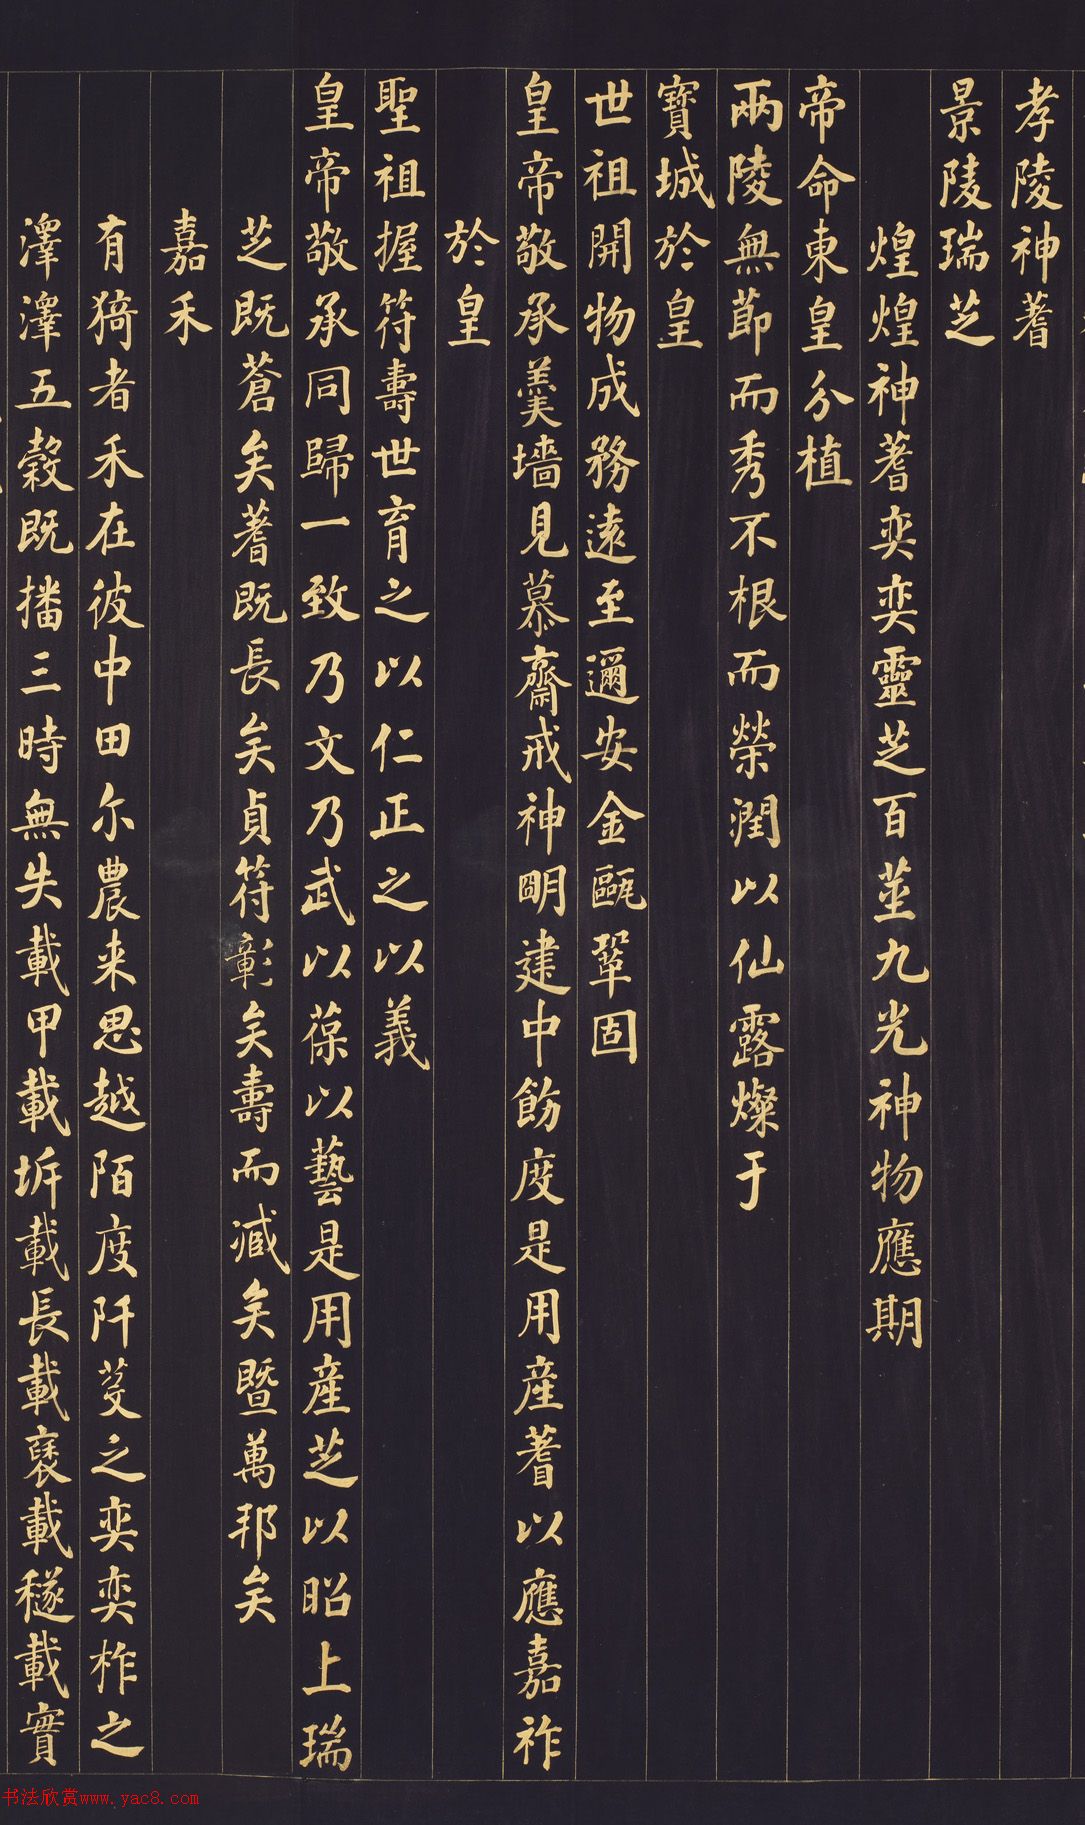 孝陵神蓍
景陵瑞芝
煌煌神蓍奕奕靈芝百莖九光神物應期
帝命東皇分植
兩陵無節而秀不根而榮潤以仙露燦于
寳城於皇
世祖開物成務遠至邇安金甌鞏固
皇帝敬承羹墻見慕齋戒神明建中飭度是用産蓍以應嘉祚
於皇
聖祖握符壽世育之以仁正之以義
皇帝敬承同歸一致乃文乃武以葆以藝是用産芝以昭上瑞
芝既蒼矣蓍既長矣貞符彰矣壽而臧矣暨萬邦矣
嘉禾
有猗者禾在彼中田尓農来思越陌度阡芟之奕奕柞之
澤澤五穀既播三時無失載甲載坼載長載褎載穟載實
书法欣赏www.yac8.com